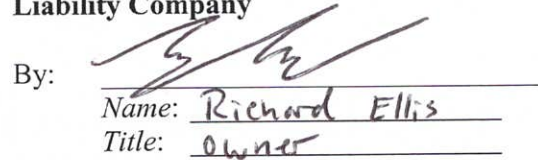 Liability Company
By:
Name: Richard Ellis
Title: Owner